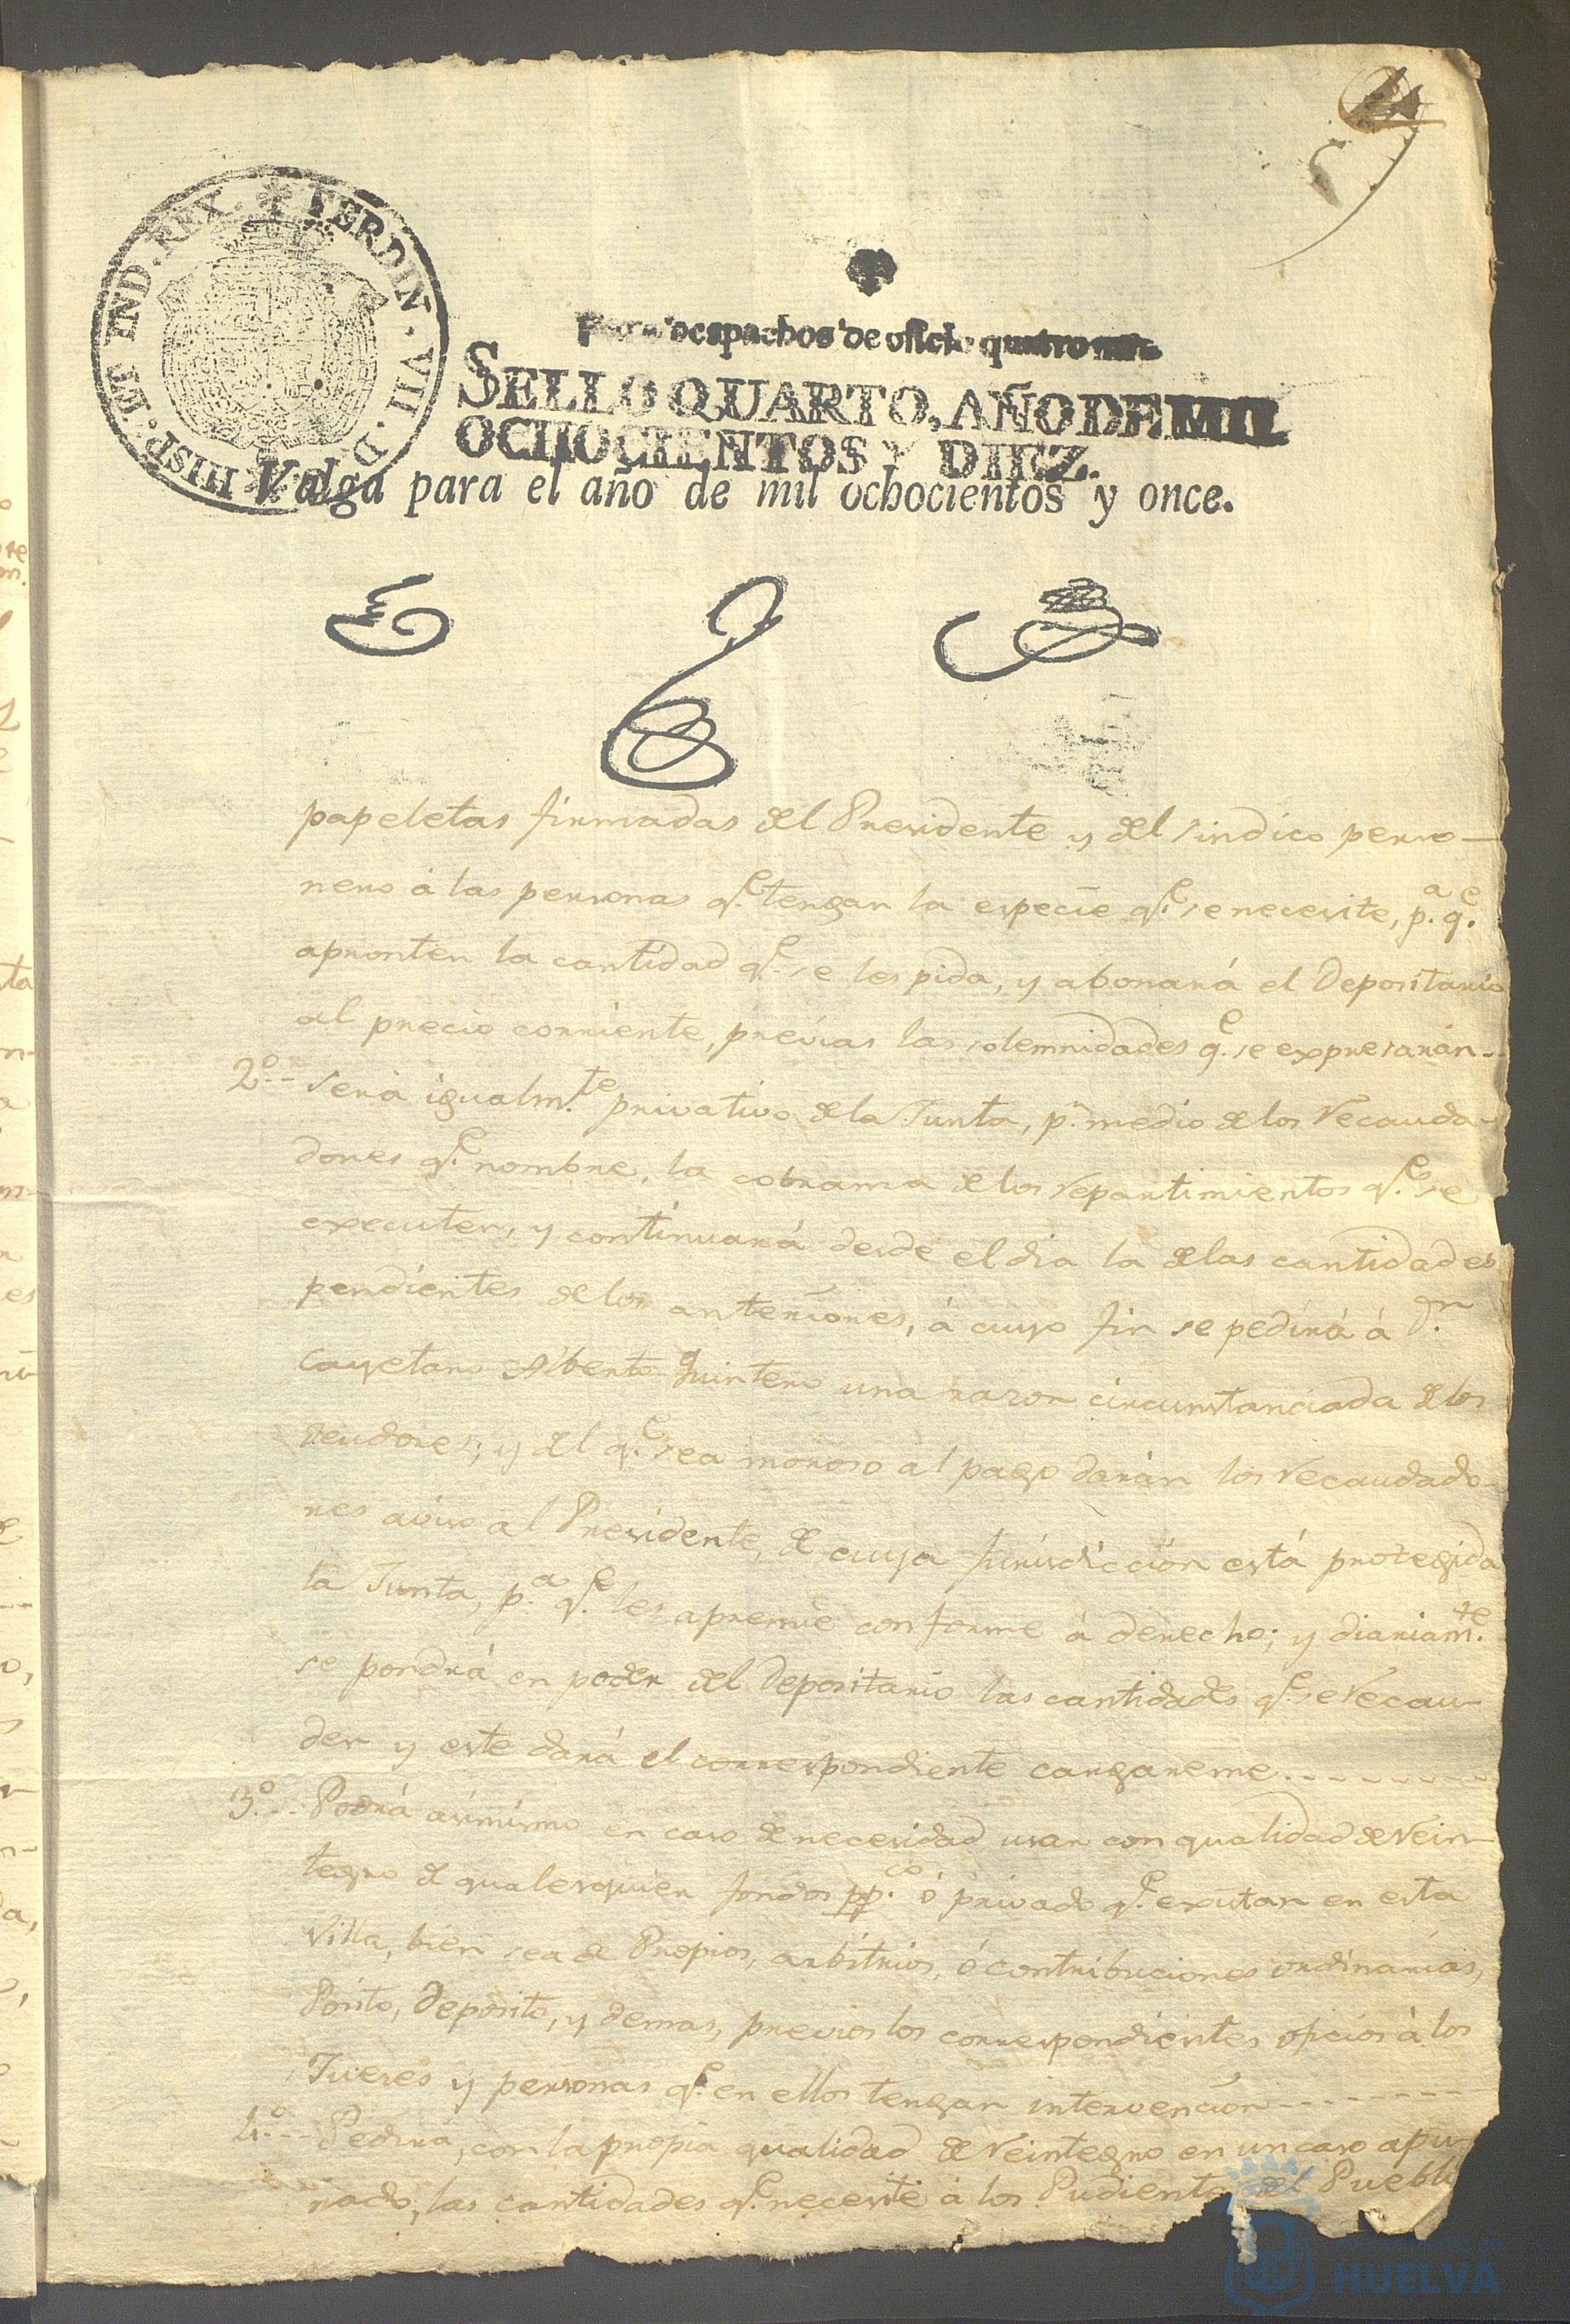 FERDIN. VII. D. G. HISP. ET IND. REX.
Para despachos de oficio quatro mrs.
SELLO QUARTO, AÑO DE MIL
OCHOCIENTOS Y DIEZ.
Valga para el año de mil ochocientos y once.
papeletas firmadas del Presidente y del sindico perso-
nero á las personas q.e tengan la especie q.e se necesite, p.a q.e
apronten la cantidad q.e se les pida, y abonará el Depositario
al precio corriente, prévias las solemnidades q.e se expresarán--
2.o-- Será igualm.te privativo de la Junta, p.r medio de los Recauda-
dores q.e nombre, la cobranza de los repartimientos q.e se
executen, y continuará desde el dia la de las cantidades
pendientes de los anteriores, á cuyo fin se pedirá á D.n
Cayetano Alberto Quintero una razon circunstanciada de los
deudores; y del q.e sea moroso al pago darán los recaudado-
res aviso al Presidente, de cuya jurisdiccion está protegida
la Junta, p.a q.e les apremie conforme á derecho; y diariam.te
se pondrá en poder del Depositario las cantidades q.e se recau-
den y este dará el correspondiente cargareme.--------
3.o-- Podrá asimismo en caso de necesidad usar con qualidad de rein-
tegro de qualesquier fondos pp.co ó privado q.e existan en esta
Villa, bien sea de Propios, arbitrios, ó contribuciones ordinarias,
Pósito, Deposito, y demas, previos los correspondientes oficios á los
Jueces y personas q.e en ellos tengan intervencion------
4.o--- Pedirá, con la propia qualidad de reintegro en un caso apu-
rado, las cantidades q.e necesite á los Pudientes del Pueblo
HUELVA